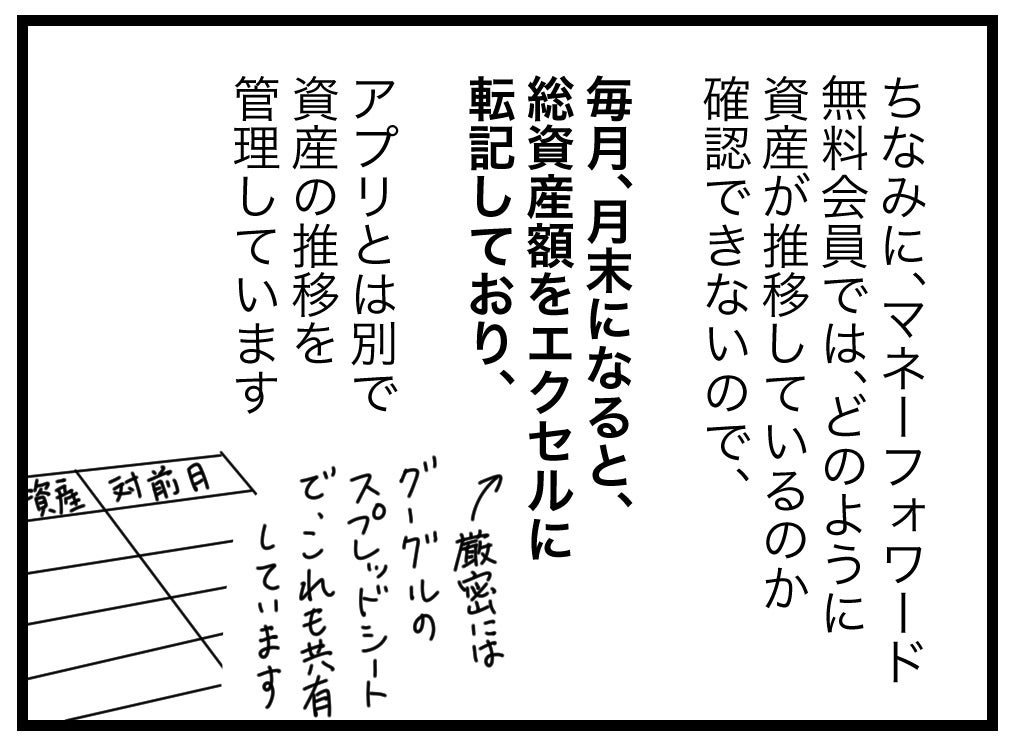 ちなみに、マネーフォワード
無料会員では、どのように
資産が推移しているのか
確認できないので、
毎月、月末になると、
総資産額をエクセルに
転記しており、
アプリとは別で
資産の推移を
管理しています
厳密には
グーグルの
スプレッドシート
で、これも共有
しています
資産 対前月